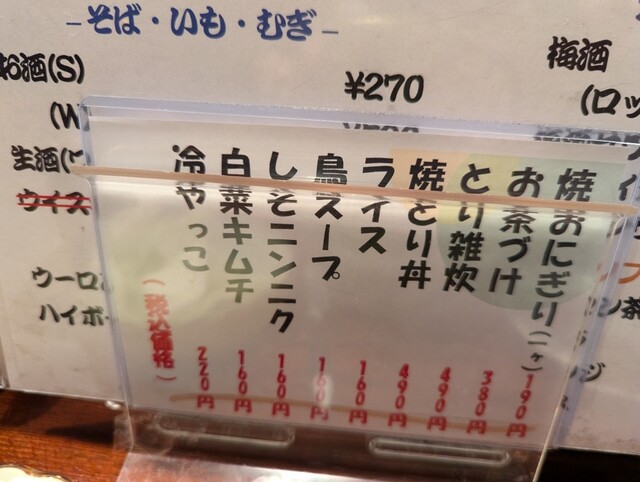 焼おにぎり(一ヶ) 190円
お茶づけ 380円
とり雑炊 490円
焼とり丼 490円
ライス 160円
鳥スープ 160円
しそニンニク 160円
白菜キムチ 160円
冷やっこ 220円
(税込価格)
-そば・いも・むぎ-
お酒(S) ¥270
生酒
ウイス
ハイボ
梅酒
(ロッ